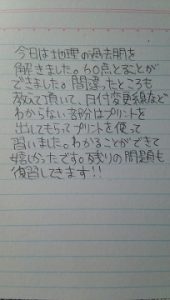 今日は地理の過去問を
解きました。50点とることが
できました。間違ったところも
教えて頂いて、日付変更線など
わからない部分はプリントを
出してもらってプリントを使って
習いました。わかることができて
嬉しかったです。残りの問題も
復習してきます!!